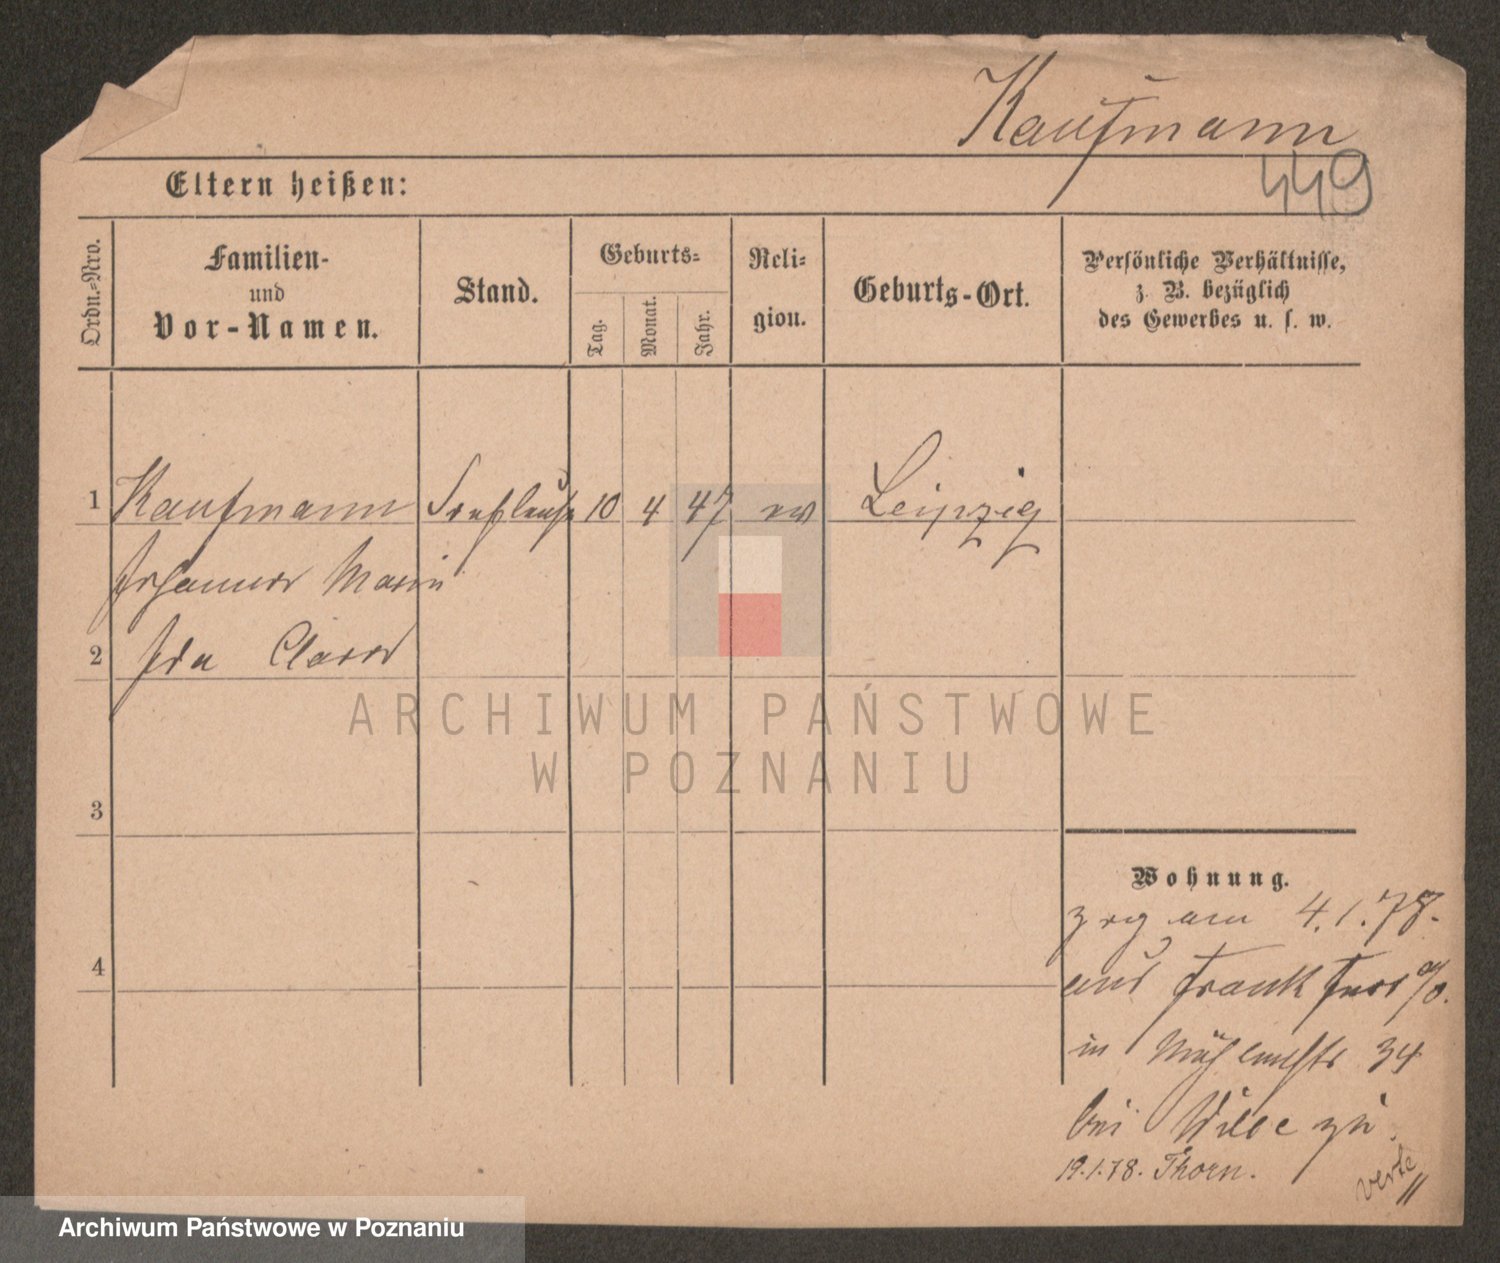 Kaufmann
449
Eltern heißen:
Ordn.-Nro.
Familien-
und
Vor-Namen.
Stand.
Geburts-
Tag.
Monat.
Jahr.
Reli-
gion.
Geburts-Ort.
Persönliche Verhältnisse,
z. B. bezüglich
des Gewerbes u. s. w.
1 Kaufmann 10 4 47 ev Leipzig
Marie
2 Ida Clara
3
4
Wohnung.
zog am 4.1.78.
aus Frankfurt a/O.
in Mühlenstr 34
bei zu
19.1.78. Thorn.
verte
ARCHIWUM PAŃSTWOWE
W POZNANIU
Archiwum Państwowe w Poznaniu